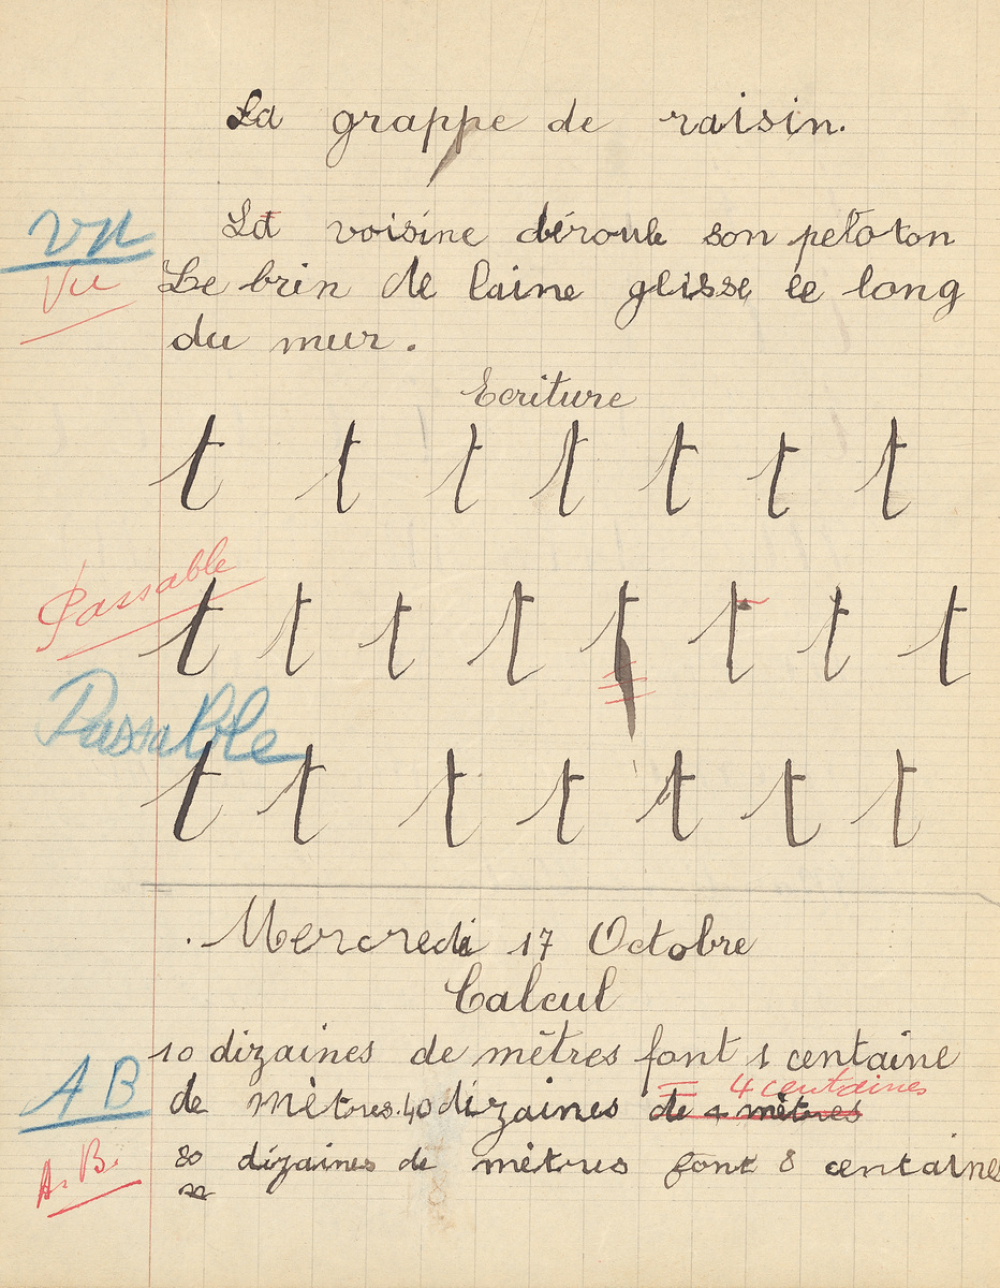 La grappe de raisin.
Vu
La voisine déroule son peloton
Vu
Le brin de laine glisse le long
du mur.
Ecriture
t t t t t t t
Passable
t t t t t t t t
Passable
t t t t t t t
Mercredi 17 Octobre
Calcul
10 dizaines de mètres font 1 centaine
4 centaines
AB
de mètres. 40 dizaines de 4 mètres
A. B.
80 dizaines de mètres font 8 centaines